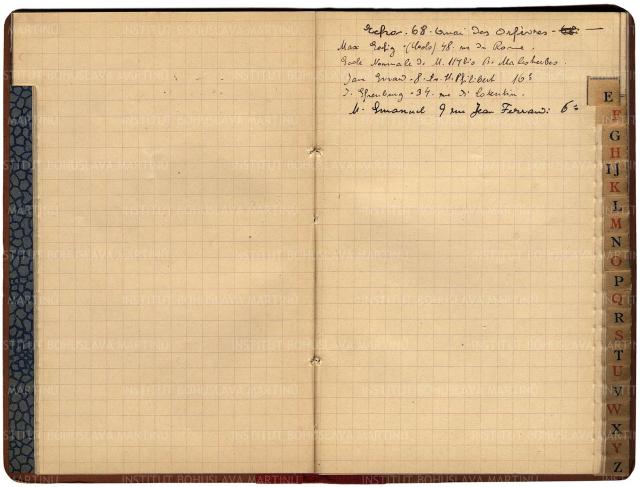 68. Quai des Orfèvres -
Max 48. rue de Rome.
Ecole Normale de M. Bd Malesherbes.
Jan 8. St Philibert 16e
J. Ehrenburg. 34. rue du Cotentin.
Mr Emanuel 9 rue Jean Ferrandi 6e
E
F
G
H
IJ
K
L
M
N
O
P
Q
R
S
T
U
V
W
X
Y
Z
INSTITUT BOHUSLAVA MARTINŮ